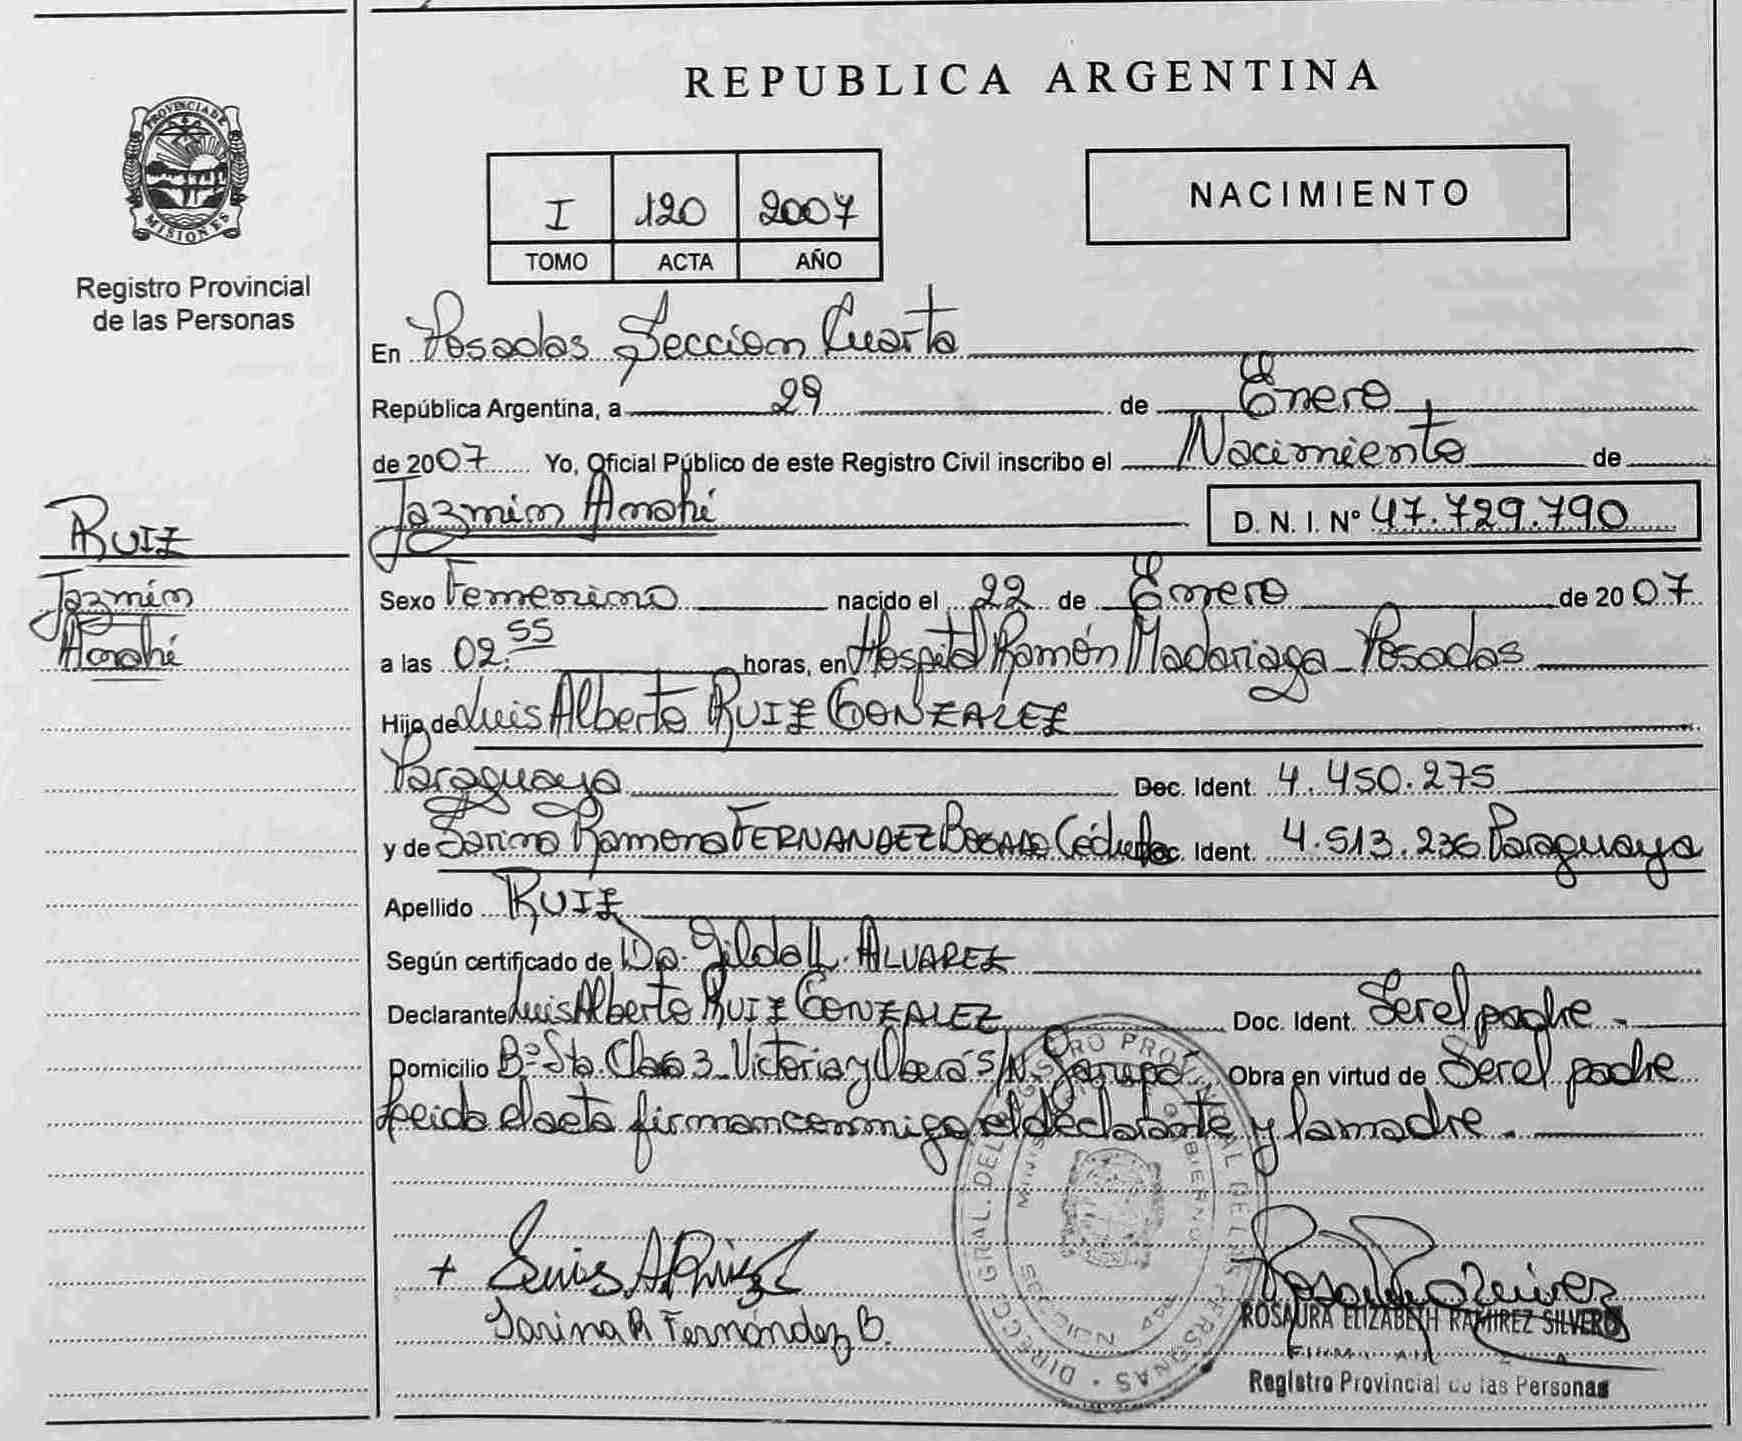 REPUBLICA ARGENTINA
PROVINCIA DE
MISIONES
Registro Provincial
de las Personas
I 120 2007
TOMO ACTA AÑO
NACIMIENTO
En Posadas Sección Cuarta
República Argentina, a 29 de Enero
de 2007 Yo, Oficial Público de este Registro Civil inscribo el Nacimiento de
Jazmín Anahí D. N. I. Nº 47.729.790
RUIZ
Jazmín
Anahí
Sexo Femenino nacido el 22 de Enero de 2007
a las 02:55 horas, en Hospital Ramón Madariaga Posadas
Hijo de Luis Alberto RUIZ GONZALEZ
Paraguaya Doc. Ident. 4.450.275
y de Ramona FERNANDEZ Cédula Doc. Ident. 4.513.236 Paraguaya
Apellido RUIZ
Según certificado de Gilda L. ALVAREZ
Declarante Luis Alberto RUIZ GONZALEZ Doc. Ident. Ser el padre.
Domicilio Bº Sta. Victoria y Oberá S/N. Garupá Obra en virtud de Ser el padre
leida el acta firman conmigo el declarante y la madre.
+ Luis A Ruiz
R Fernández B.
DIRECC. GRAL. DEL REGISTRO PROVINCIAL DE LAS PERSONAS
ROSAURA ELIZABETH RAMIREZ SILVERO
Registro Provincial de las Personas